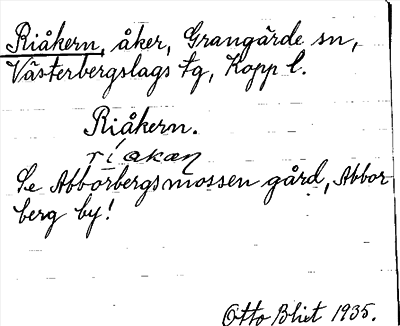 Riåkern, åker, Grangärde sn,
Västerbergslags tg, Kopp l.
Riåkern.
ríakaṇ
Se Abborbergsmossen gård, Abbor
berg by!
Otto Blixt 1935.